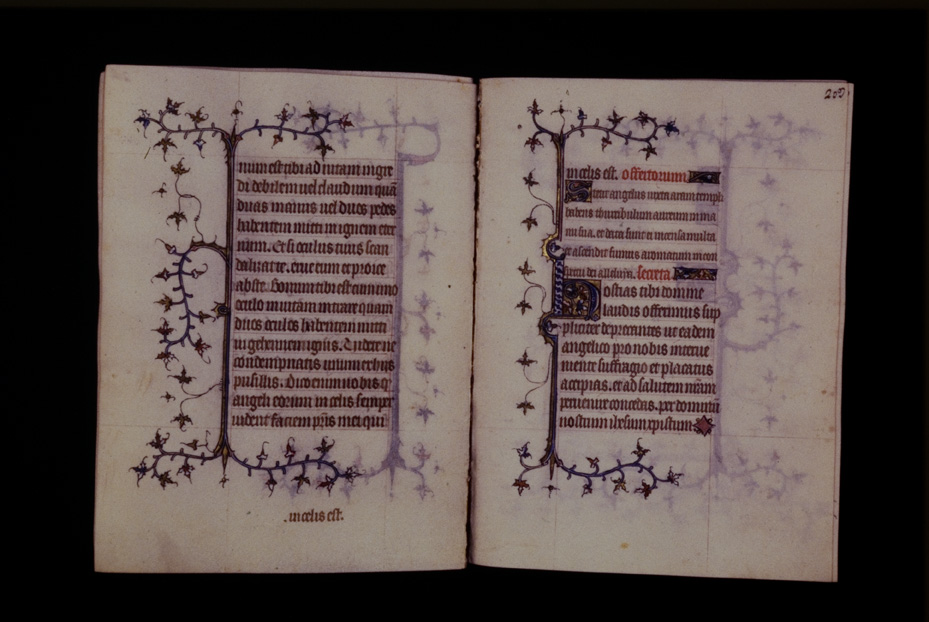 num est tibi ad uitam ingre
di debilem uel claudum quã
duas manus uel duos pedes
habentem mitti in ignem eter
num. Et si oculus tuus scan
dalizat te. erue eum et proice
abs te. Bonum tibi est cum uno
oculo in uitam intrare quam
duos oculos habentem mitti
in gehennam ignis. Uidete ne
contempnatis unum ex hijs
pusillis. Dico enim uobis q
angeli eorum in celis semper
uident faciem pr̃is mei qui
. in celis est.
200
in celis est. offertorium
Stetit angelus iuxta aram templi
habens thuribulum aureum in ma
nu sua. et data sunt ei incensa multa
et ascendit fumus aromatum in con
spectu dei alleluya. secreta
Hostias tibi domine
laudis offerimus sup
pliciter deprecantes ut eadem
angelico pro nobis interue
niente suffragio et placatus
accipias. et ad salutem nr̃am
peruenire concedas. per dominũ
nostrum ihesum xpistum